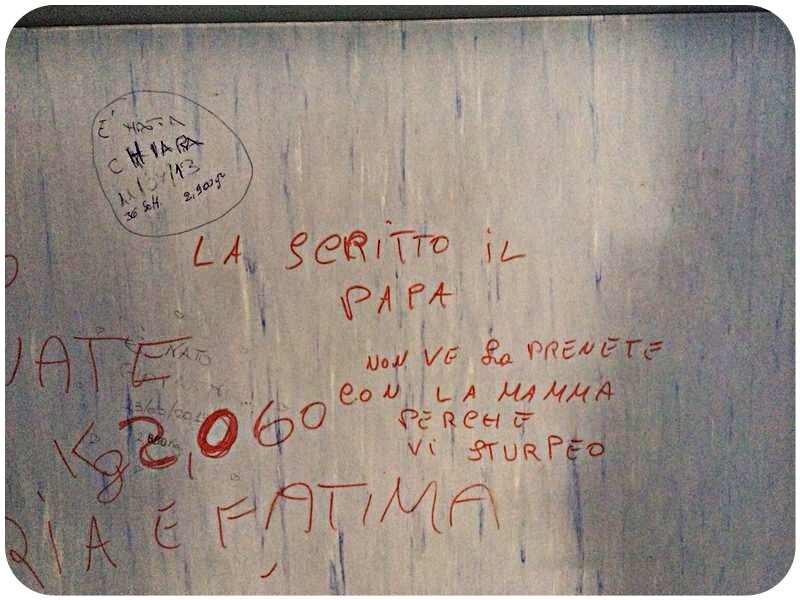 E' NATA
CHIARA
11/04/13
36 Sett. 2,900 gr
LA SCRITTO IL
PAPA
NATO
NON VE La PRENETE
CON LA MAMMA
PERCHE
VI STURPEO
Kg 2,060
RIA E FATIMA